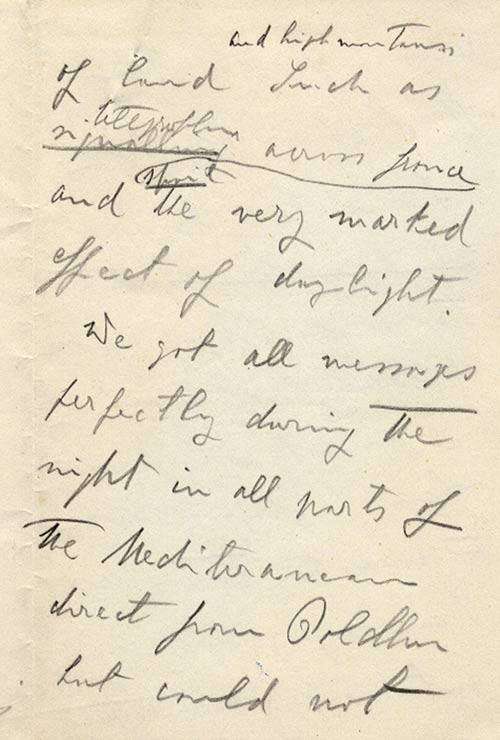 and high mountains
of land Such as
telegraphing
signalling across france
and the very marked
effect of daylight.
We got all messages
perfectly during the
night in all parts of
the Mediterranean
direct from Poldhu
but could not